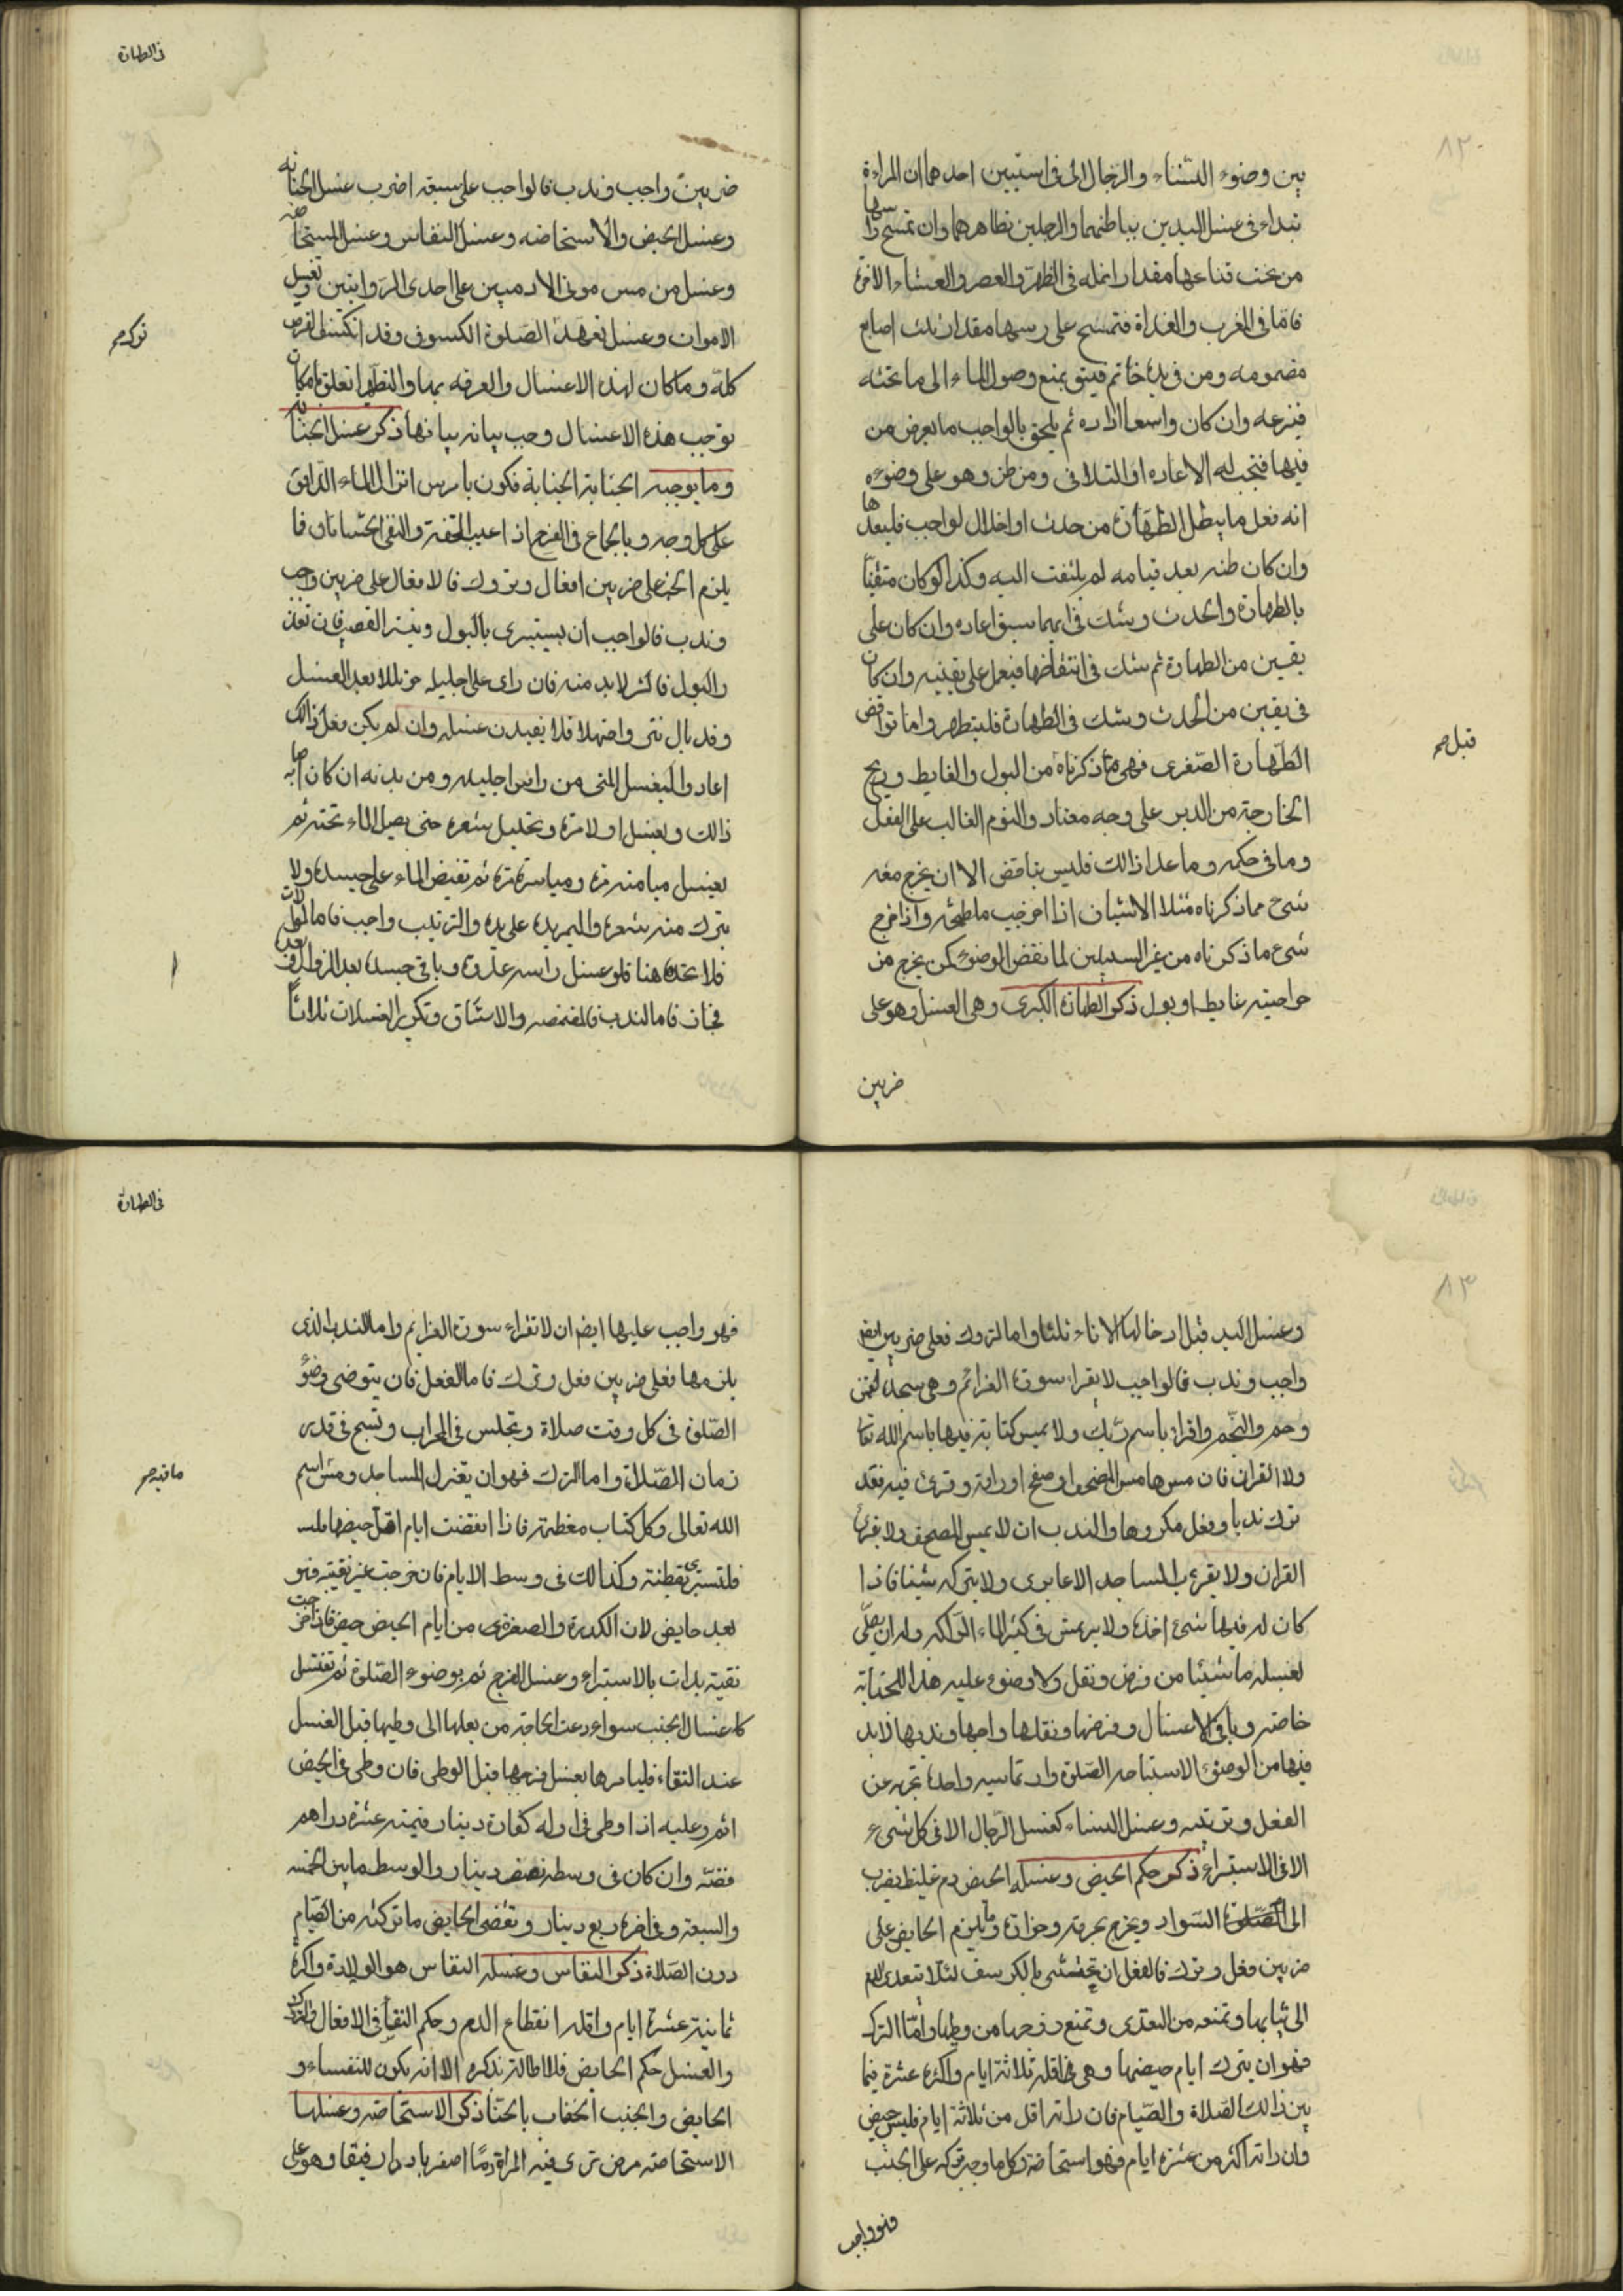 بين وضوء النساء والرجال الى فى استثنين احدهما ان المراءة
تبداء فى غسل اليدين بباطنهما والرجلين بظاهرهما وان تمسح راسها
من تحت قناعها مقدار انمله فى الظهر والعصر والعشاء الاخرة
فاما فى المغرب والغداة فتمسح على رسها مقدار ثلث اصابع
مضمومه ومن فى يده خاتم ضيق يمنع وصول الماء الى ما تحته
فينزعه وان كان واسعا اداره ثم يلحق بالواجب ما يعرض من
فيها فتجب له الاعاده او التلافى ومن ظن وهو على وضوءه
انه فعل ما يبطل الطهارة من حدث او اخلال لواجب فليعدها
وان كان ظنه بعد قيامه لم يلتفت اليه وكذا لو كان متقنا
بالطهارة والحدث وشك فى ايهما سبق اعاده وان كان على
يقين من الطهارة ثم شك فى انتقاضها فيعمل على يقينه وان كان
فى يقين من الحدث وشك فى الطهارة فليتطهر واما نواقض
الطهارة الصغرى فهى ما ذكرناه من البول والغايط وريح
الخارجة من الدبر على وجه معتاد والنوم الغالب على العقل
وما فى حكمه وما عدا ذالك فليس بناقض الا ان يخرج معه
شىء مما ذكرناه مثلا الانسان اذا اخرجب ما طعمه واذا خرج
شىء ما ذكرناه من غير السبيلين لما نقض الوضوء لكن يخرج من
جراحيته غايط او بول ذكر الطهارة الكبرى وهى الغسل وهو على
ضربين
قبل صح
٨٢
فى الطهارة
ضربين واجب وندب فالواجب على سبعه اضرب غسل الجنابه
وغسل الحيض والاستحاضه وغسل النفاس وغسل المستحاضه
وغسل من مس موتى الادميين على احدى الروايتين وتغسيل
الاموات وغسل تعمد الصلوة الكسوف وقد انكسف القرص
كله وما كان لهذه الاغسال والمعرفه بها والتطهر تعلق بامكان
يوجب هذه الاغسال وجب بيانه بيانها ذكر غسل الجنابه
وما يوجبه الجنابة الجنابة فكون بامرين انزال الماء الدافق
على كل وجه وبالجماع فى الفرج اذا غيب الحقفة والتقى الختانان فا
يلزم الجنب على ضربين افعال وتروك فالافعال على ضربين واجب
وندب فالواجب ان يستبرى بالبول وينتر القصيب فان تعذر
والبول فالنتر لابد منه فان راى على اجليله من بللا بعد الغسل
وقد بال نتر واضهلا فلا يعيدن غسله وان لم يكن فعل ذالك
اعاد واليغسل المنى من راس اجليله ومن بدنه ان كان اصابه
ذالك ويغسل اولا مرة وتخليل شعره حتى يصل الماء تحته ثم
يغسل ميامنه مرة ومياسره مرة ثم تفيض الماء على جسده ولا
يترك منه شعره واليمر يده على يده والترتيب واجب فاما الموالات
فلا تجده هنا فلو غسل راسه غدوة وباقى جسده بعد الزوال
فجاز فاما الندب فالمضمضه والاستنشاق وتكرير الغسلات ثلاثا
نوكد صح
وغسل اليد قبل ادخالها الاناء ثلثا واما التروك فعلى ضربين ايض
واجب وندب فالواجب لا يقراء سورة العزائم وهى سجده لقمن
وحم والنجم واقرا باسم ربك ولا يمس كتابة فيها باسم الله تعا
ولا القران فان مس هامس المصحف او صفح اوراقه وقرئ فيه فقد
ترك ندبا وفعل مكروها والندب ان لا يمس المصحف ولا يقراء
القران ولا يقرب المساجد الا عابرى ولا يترك شيئا فاذا
كان له فيها شىء اخذه ولا يرتمس فى كثير الماء الراكد وله ان يصلى
لغسله ما شيئا من فرض ونفل ولا وضوء عليه هذا للجنابه
خاصه وباقى الاغسال وفرضها ونفلها واجبها وندبها لابد
فيها من الوضوء الاستباحه الصلوة وارتماسه واحدة تجزيه عن
الغسل وترتيبه وغسل النساء كغسل الرجال الا فى كل شىء
الا فى الاستبراء ذكر حكم الحيض وغسله الحيض دم غليظ يضرب
الى السواد ويخرج بحرقة وحرارة وما يلزم الحايض على
ضربين فعل وترك فالفعل ان تحتشى بالكرسف لئلا يتعدى الدم
الى ثيابها وتمنعه من التعدى وتمنع زوجها من وطيها واما الترك
فهو ان يترك ايام حيضها وهى فى اقله ثلاثة ايام واكثره عشرة فيما
بين ذالك الصلاة والصيام فان راته اقل من ثلاثة ايام فليس حيض
وان راته اكثر من عشرة ايام فهو استحاضة وكل ما وجب تركه على الجنب
فهو واجب
٨٣
فى الطهارة
فهو واجب عليها ايضا ان لا تقراء سورة العزايم واما الندب الذى
يلزمها فعلى ضربين فعل وترك فاما الفعل فان يتوضى وضوء
الصلوة فى كل وقت صلاة وتجلس فى المحراب وتسبح فى قدر
زمان الصلاة واما الترك فهو ان يعتزل المساجد ومس اسم
الله تعالى وكل كتاب معظمة فاذا انقضت ايام اقل حيضها
فلتستبرى بقطنة وكذالك فى وسط الايام فان خرجت غير نقيته فهو
بعد حايض لان الكدرة والصفرة من ايام الحيض حيض فاذا خرجت
نقية بدات بالاستبراء وغسل الفرج ثم بوضوء الصلوة ثم تغتسل
كاغتسال الجنب سواء دعت الحاجة من بعلها الى وطيها قبل الغسل
عند النقاء فليامرها بغسل فرجها قبل الوطى فان وطى فى الحيض
اثم وعليه اذا وطى فى اوله كفارة دينار قيمته عشرة دراهم
فضه وان كان فى وسطه نصف دينار والوسط ما بين الخمسه
والسبعة وفى اخره ربع دينار وتقضى الحايض ما تركته من الصيام
دون الصلاة ذكر النفاس وغسله النفاس هو الولادة واكثره
ثمانية عشرة ايام واقله انقطاع الدم وحكم النفاس فى الافعال والتروك
والغسل حكم الحايض فلا اطالة بذكره الا انه يكون للنفساء و
الحايض والجنب الخضاب بالحنا ذكر الاستحاضه وغسلها
الاستحاضه مرض ترى فيه المراة دما اصفر باردا رقيقا وهو على
ما فيه صح